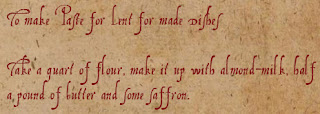 To make Paste for Lent for made Dishes
Take a quart of flour, make it up with almond-milk, half
a pound of butter and some saffron.